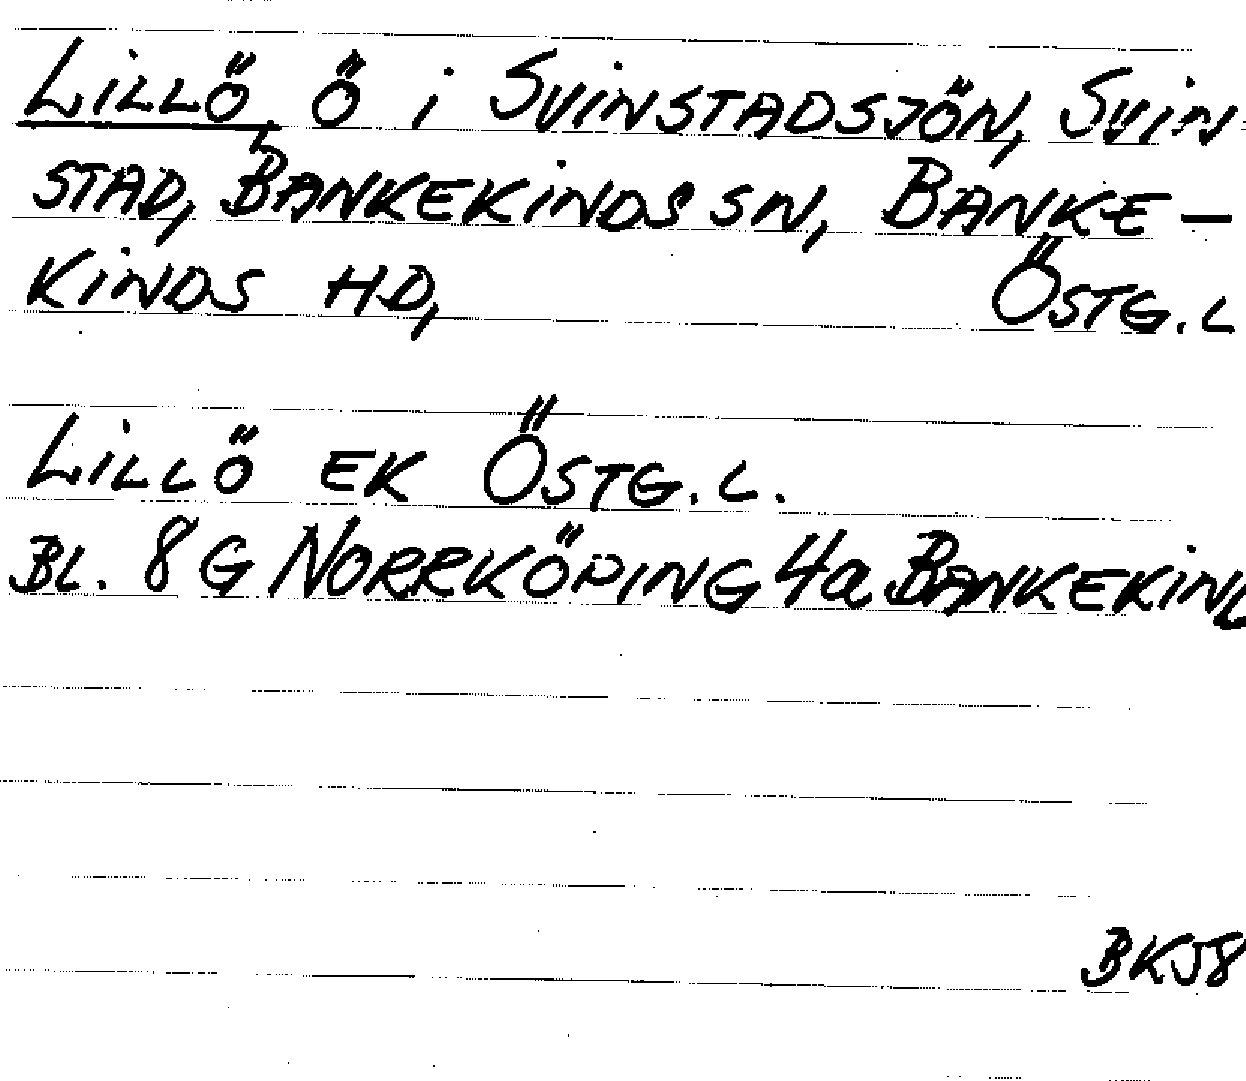 Lillö, Ö i Svinstadsjön, Svin-
stad, Bankekinds sn, Banke-
kinds hd, Östg.l
Lillö ek Östg.l.
Bl. 8 G Norrköping 4a Bankekind